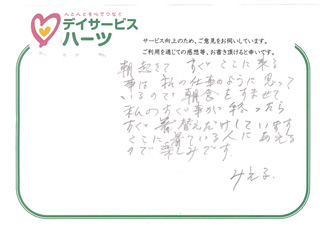 人と人とをつなぐ
デイサービス
ハーツ
サービス向上のため、ご意見をお伺いしています。
ご利用を通じての感想等、お書き頂けると幸いです。
朝起きて すぐ ここに 来る
事は 私の仕事のように 思って
いるので 朝食をすませて
私のすぐ事が 終ったら
すぐ 着替えだけしています
ここに 来ている人に あえる
ので 楽しみです。
みえ子